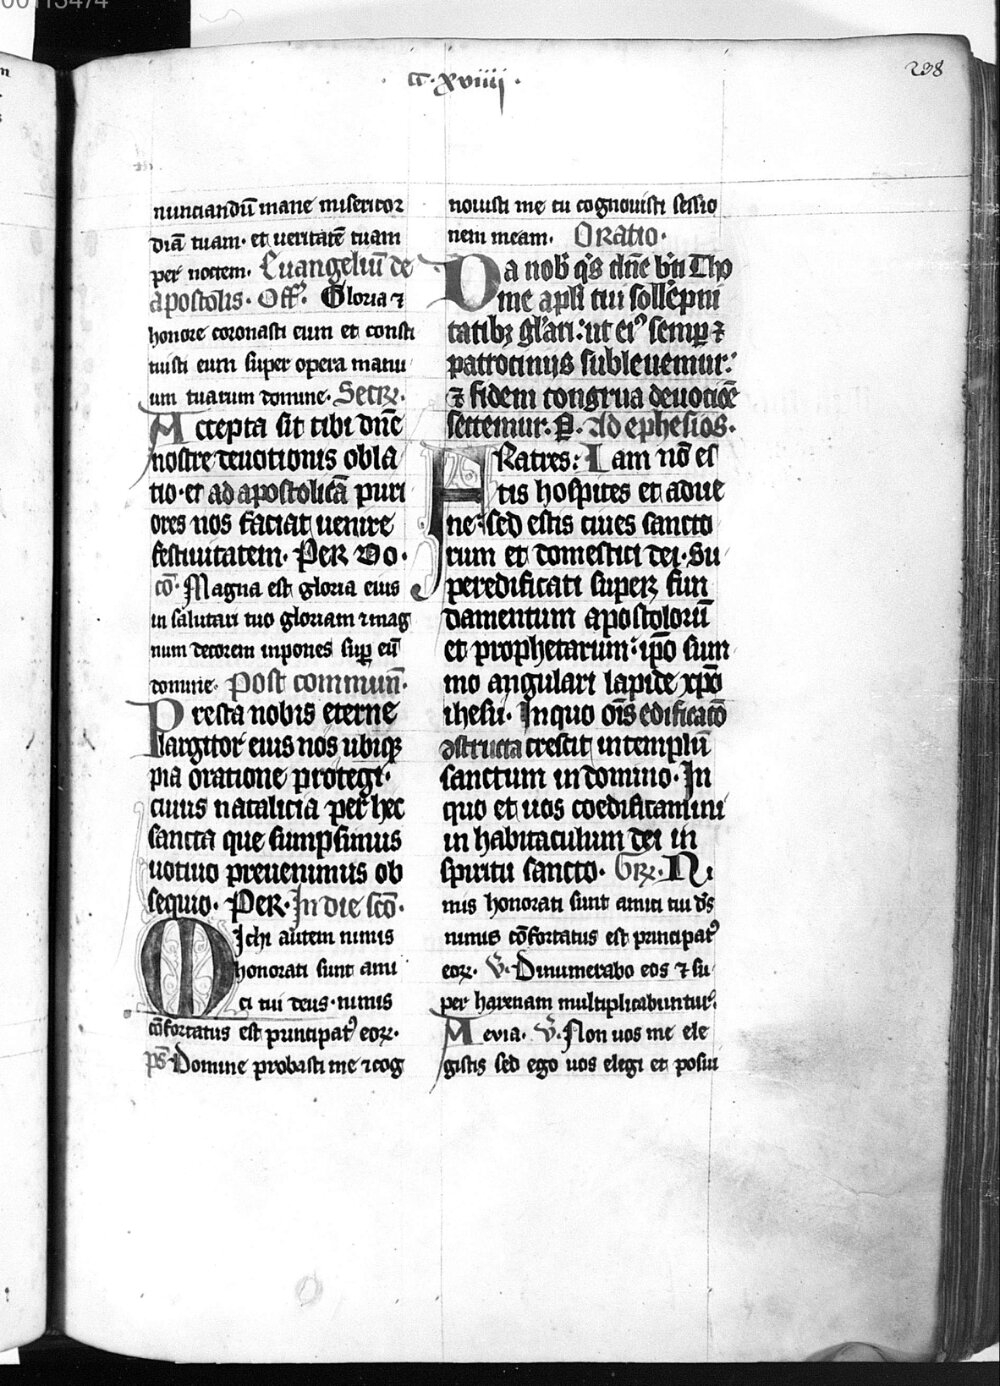 00113474
cc·xviiii·
238
nunciandū mane misericor
diā tuam· et ueritatē tuam
per noctem· Euangeliū de
apostolis· Off̄· Gloria ⁊
honore coronasti eum et consti
tuisti eum super opera manu
um tuarum domine· Secrꝝ·
Accepta sit tibi dn̄e
nostre deuotionis obla
tio· et ad apostolicā puri
ores nos faciat uenire
festiuitatem· Per Do·
cō· Magna est gloria eius
in salutari tuo gloriam ⁊ mag
num decorem inpones sup̄ eū
domine· Post commun̄·
Presta nobis eterne
largitor eius nos ubiqꝫ
pia oratione protegi·
cuius natalicia per hec
sancta que sumpsimus
uotiuo preuenimus ob
sequio· Per· In die scō·
Michi autem nimis
honorati sunt ami
ci tui deus· nimis
cōfortatus est principat᾽ eoꝝ·
ps̄ Domine probasti me ⁊ cog
nouisti me tu cognouisti sessio
nem meam· Oratio·
Da nob̄ qs̄ dn̄e bt̄i Tho
me apl̄i tui sollepni
tatibꝫ gl̄ari: ut ei᾽ semꝑ ⁊
patrociniis subleuemur:
⁊ fidem congrua deuotiōe
sectemur· P· Ad ephesios·
Fratres: Iam nō es
tis hospites et adue
ne: sed estis ciues sancto
rum et domestici dei· Su
peredificati super fun
damentum apostolorū
et prophetarum: ip̄o sum
mo angulari lapide xp̄o
ihesu· In quo om̄is edificacō
ↄstructa crescit in templū
sanctum in domino· In
quo et uos coedificamini
in habitaculum dei in
spiritu sancto· Grꝝ· Ni
mis honorati sunt amici tui ds̄
nimis cōfortatus est principat᾽
eoꝝ· V̄· Dinumerabo eos ⁊ su
per harenam multiplicabuntur·
Aeuia· V̄· Non uos me ele
gistis sed ego uos elegi et posui